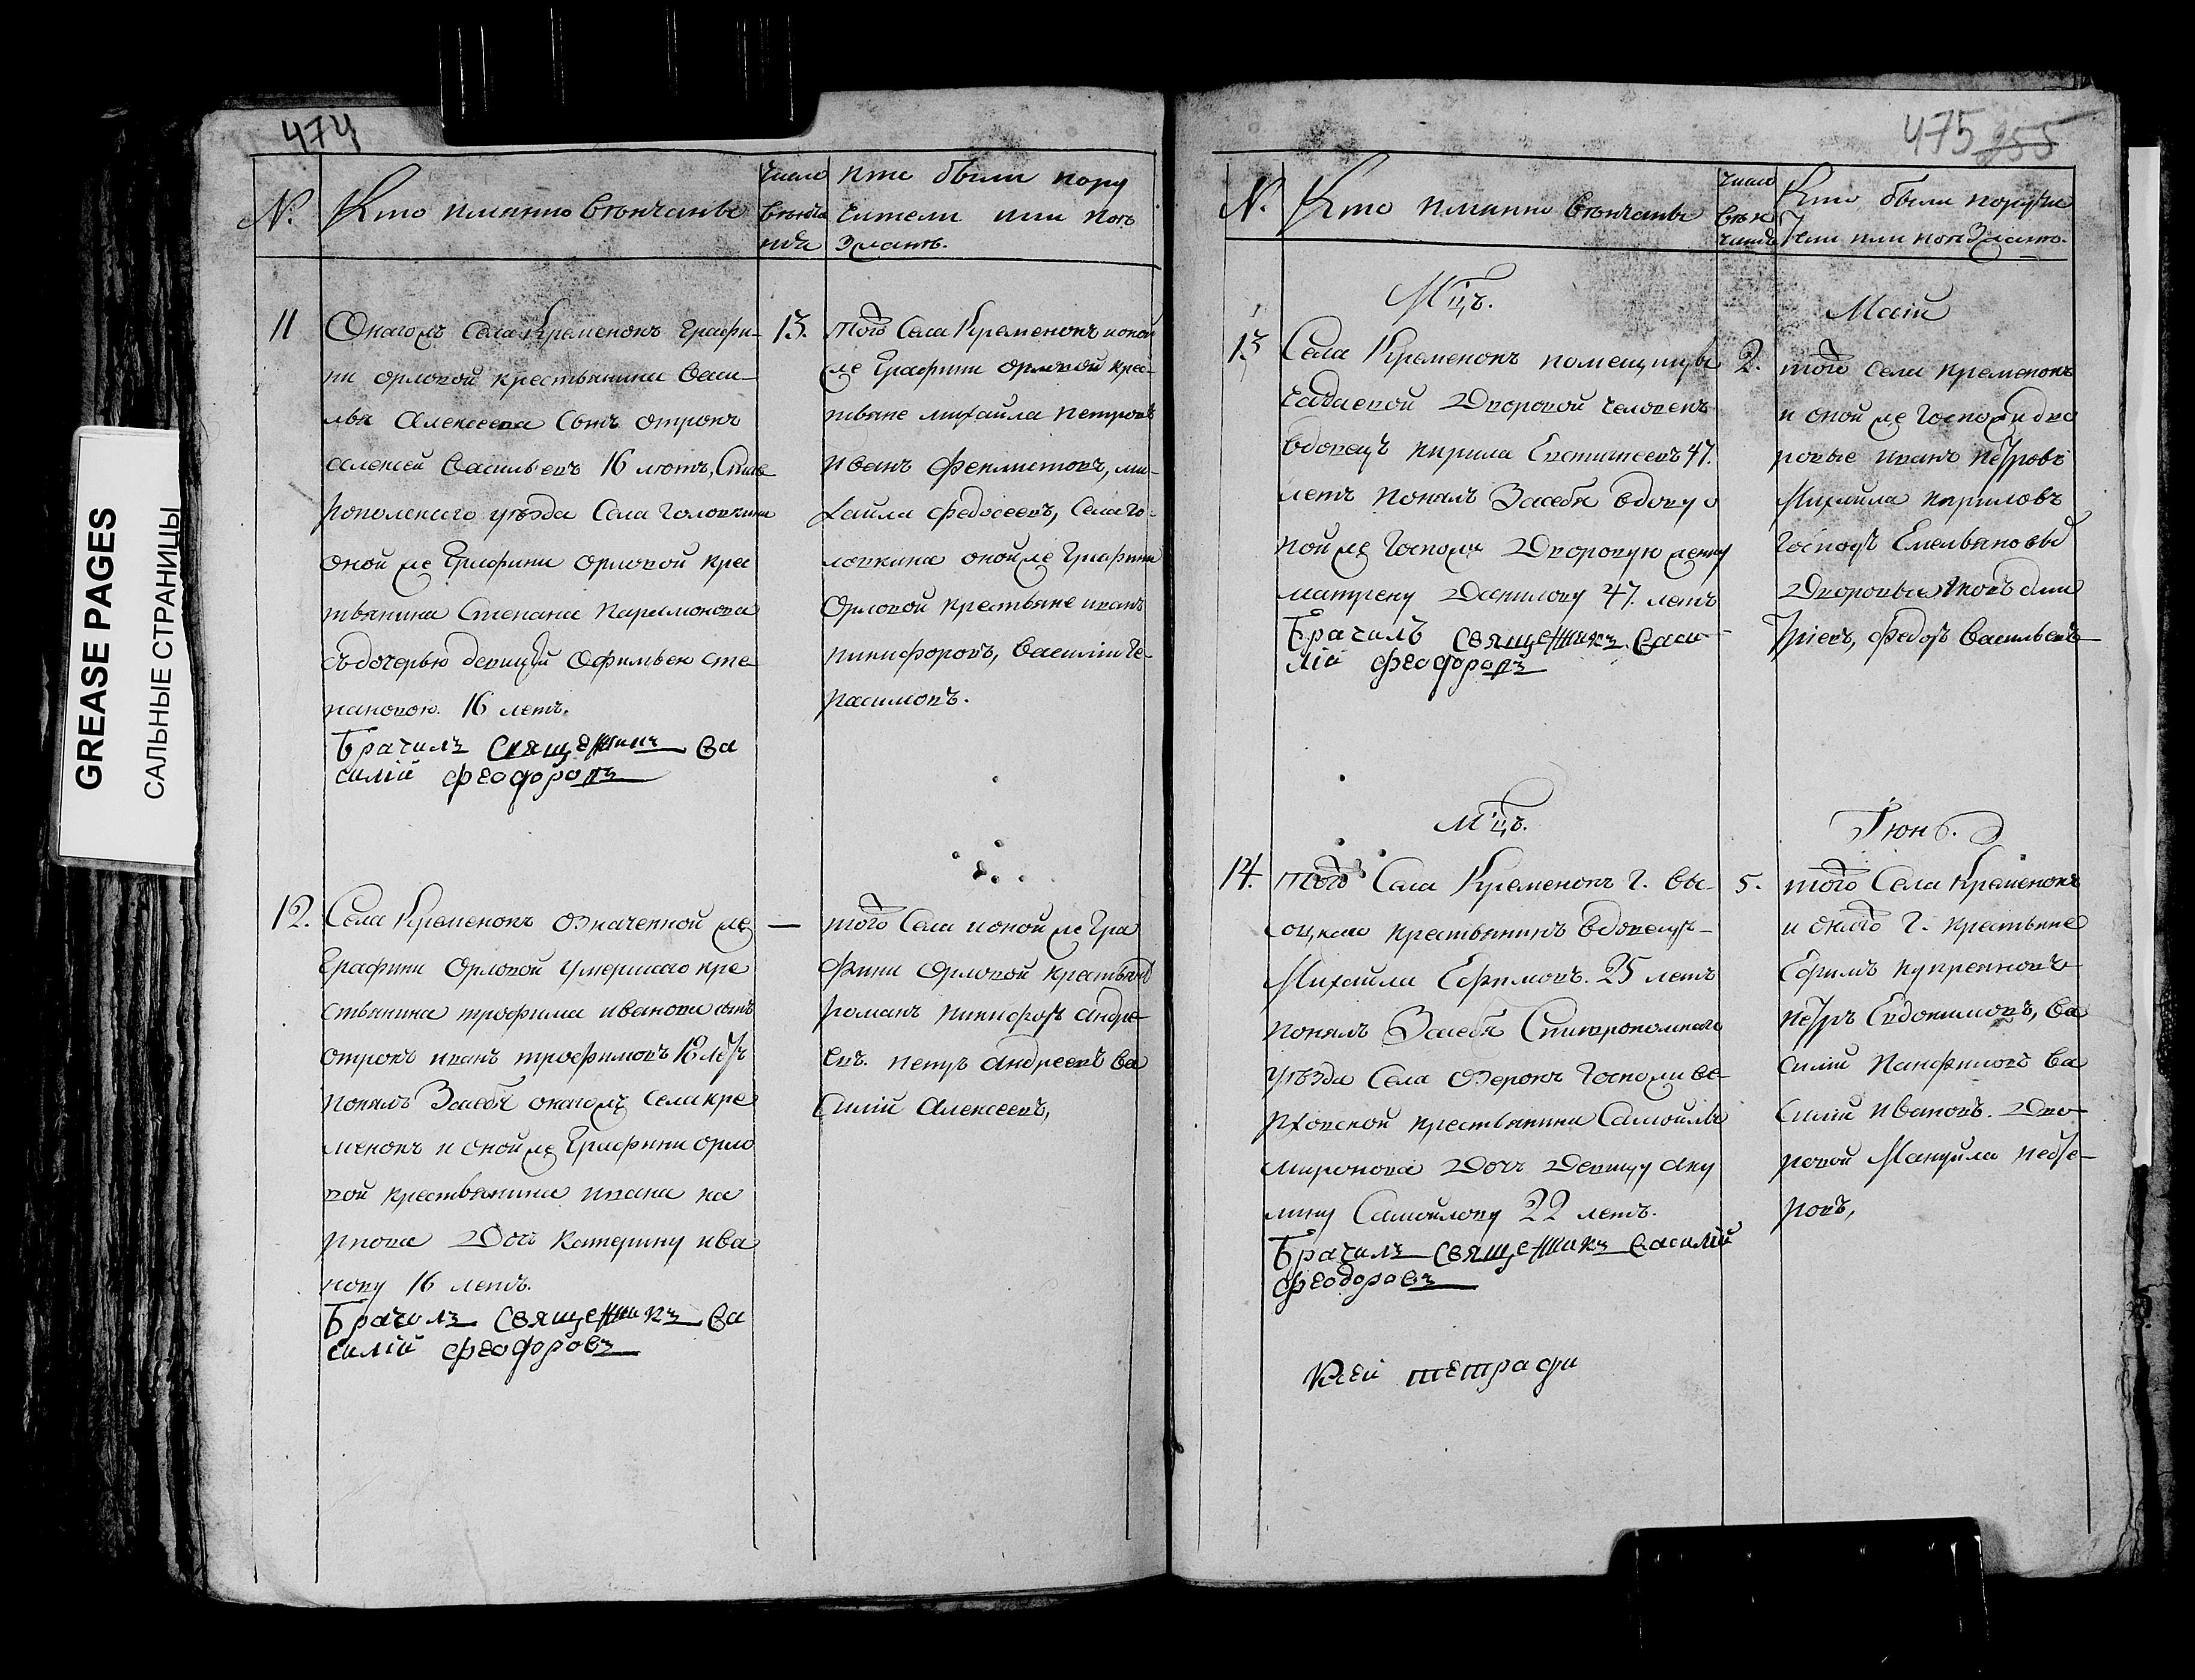 GREASE PAGES
САЛЬНЫЕ СТРАНИЦЫ
474
№.
Кто имянно венчаны
Число
венча
ния
кто были пору
чители или поез
жаня.
11
Онагожъ села Кременокъ графи-
ни орловой крестьянина Васи-
лья Алексеева сынъ отрокъ
алексей Васильевъ 16 летъ, Став
ропольскаго уезда Села Головкина
оной же Графини орловой крес
тьянина Степана Парамонова
съ дочерью девицей Офимьею Сте
пановою. 16 летъ.
Брачилъ священникъ Ва
силий феодоровъ
13.
того Села Кременокъ и оной
же Графини орловой крес-
тьяне михайла петровъ
иванъ феклистовъ, ми-
хайла федосеевъ, Села го-
ловкина оной же графини
Орловой крестьяне иванъ
никифоровъ, василий ге-
расимовъ.
12.
Села Кременокъ означенной же
Графини Орловой умершаго кре
стьянина трофима иванова сынъ
отрокъ иванъ трофимовъ 18 летъ
понялъ Засебя онагожъ села кре
менокъ и оной же Графини орло
вой крестьянина ивана ка
рпова Дочь катерину ива
нову 16 летъ.
Брачилъ священникъ Ва
силий феодоровъ
—
того Села и оной же Гра
фини Орловой крестьяне
романъ никифоръ андре
евъ. петръ андреевъ ва
силий Алексеевъ,
475 255
№.
Кто имянно венчаны
Число
вен
чания
Кто были поручи
тели или поезжаня.
Мцъ.
Маий
13
Села Кременокъ помещицы
чадаевой Дворовой человекъ
вдовецъ кирила Евстигнеевъ 47.
летъ понялъ Засебя вдову о
ной же Госпожи Дворовую женку
матрену Данилову 47. летъ
Брачилъ священникъ Васи-
лий феодоровъ
2.
того села кременокъ
и оной же Госпожи дво
ровые иванъ петровъ
Михайла кириловъ
Господъ Емельяновы
Дворовые яковъ дми
триевъ, федоръ васильевъ
Мцъ.
Июнь.
14.
того Села Кременокъ г. вы-
соцкаго крестьянинъ вдовецъ
Михайла Ефимовъ. 25 летъ
понялъ Засебя Ставропольскаго
уезда Села Озерокъ Госпожи ве
рховской крестьянина Самойлы
миронова Дочь Девицу аку
лину Самойлову 22 летъ.
Брачилъ священникъ василий
феодоровъ
5.
того Села Кременокъ
и онаго г. крестьяне
Ефимъ куприяновъ
петръ Евдокимовъ, ва
силий Панфиловъ ва
силий ивановъ. Дво
ровой Мануйла
ровъ,
сей тетради